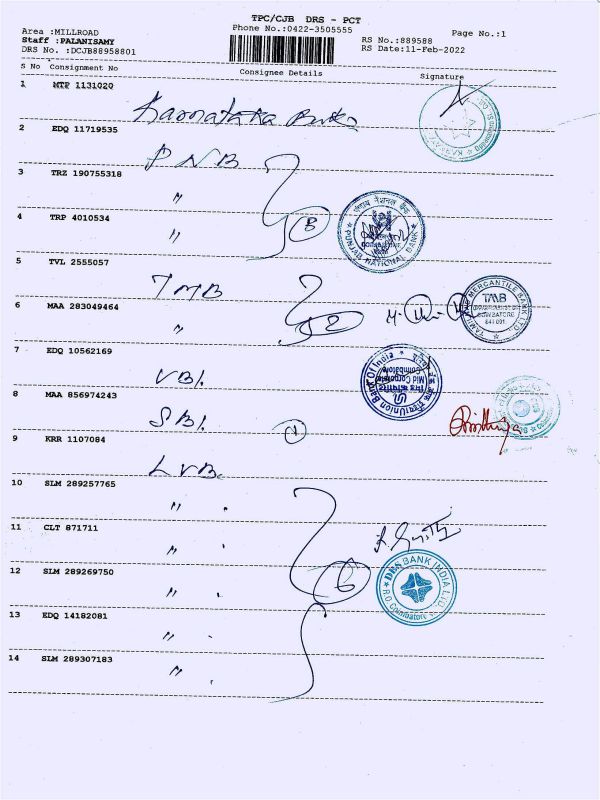 TPC/CJB DRS - PCT
Area :MILLROAD
Phone No.:0422-3505555
Page No.:1
Staff :PALANISAMY
RS No.:889588
DRS No. :DCJB88958801
RS Date:11-Feb-2022
S No Consignment No Consignee Details Signature
1 MTP 1131020
Karnataka Bank
2 EDQ 11719535
PNB
3 TRZ 190755318
"
4 TRP 4010534
"
PUNJAB NATIONAL BANK
5 TVL 2555057
TMB
TAMILNAD MERCANTILE BANK LTD.
TMB
COIMBATORE
641 001
6 MAA 283049464
" 2
7 EDQ 10562169
UBI.
Union Bank Of India
Mid Corporate
Coimbatore
8 MAA 856974243
SBI. 1
9 KRR 1107084
LVB
10 SLM 289257765
"
11 CLT 871711
"
12 SLM 289269750
" 6
DBS BANK INDIA LTD
R.O Coimbatore
13 EDQ 14182081
"
14 SLM 289307183
"